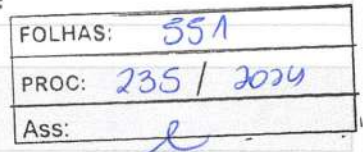 FOLHAS: 551
PROC: 235 / 2024
Ass: